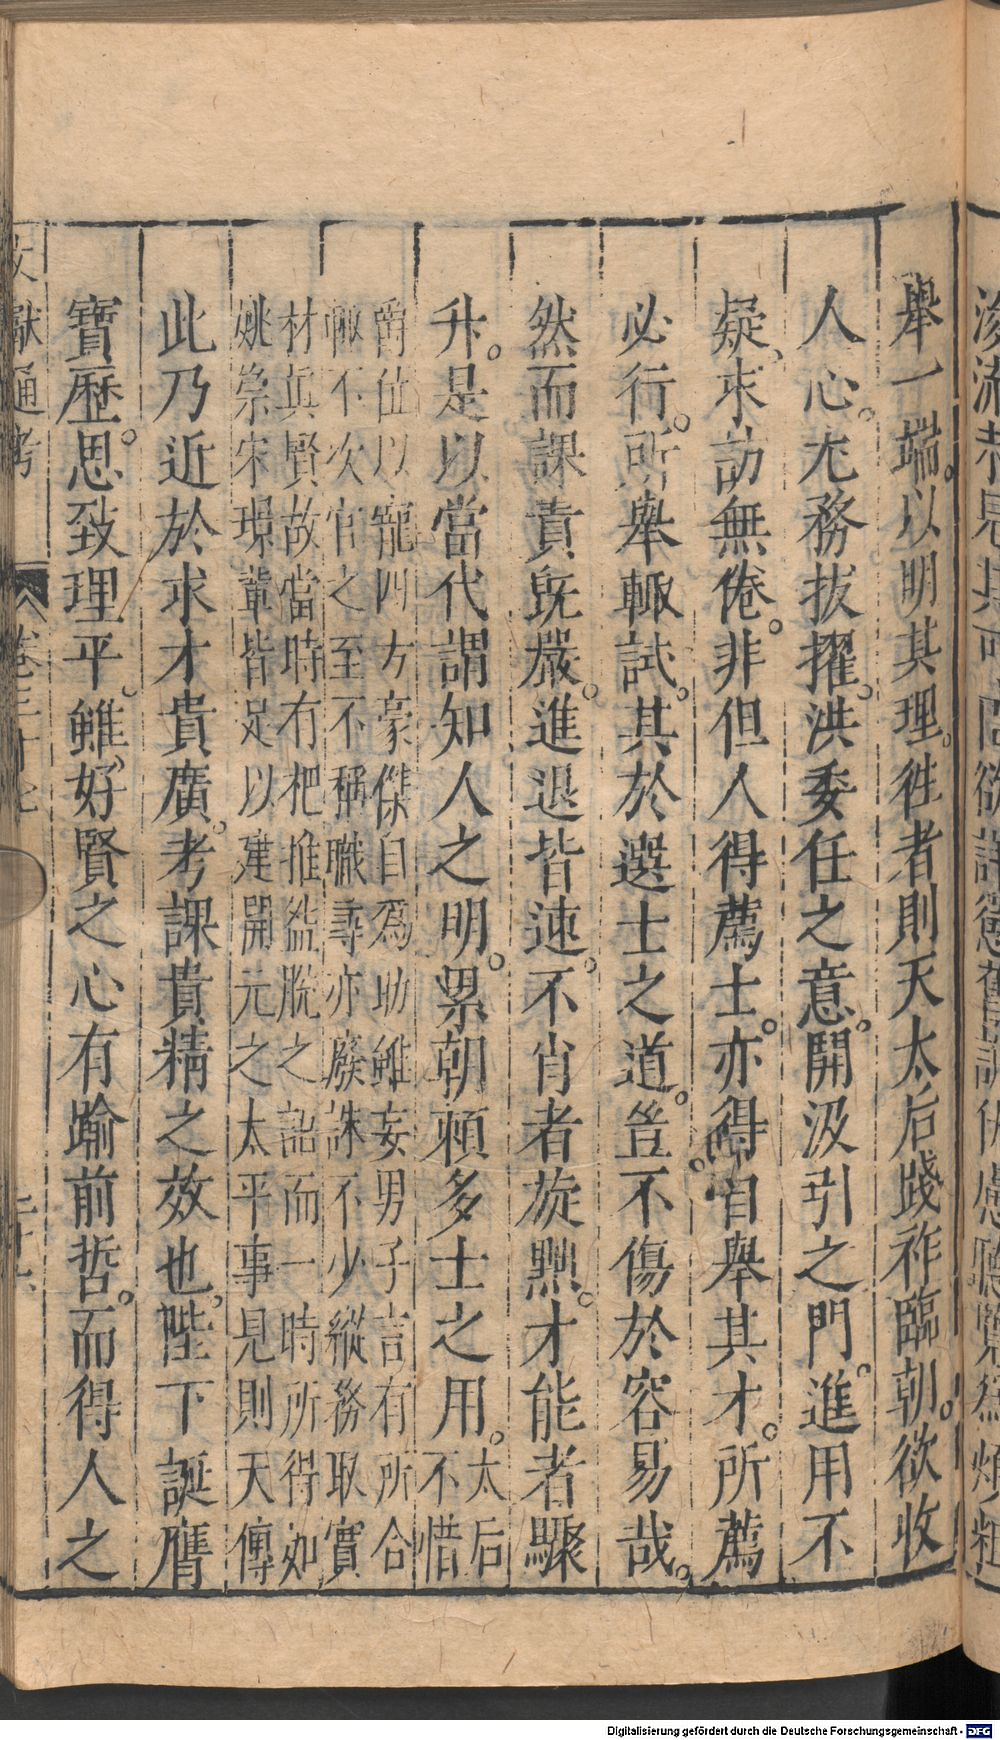 舉一端以明其理往者則天太后踐祚臨朝欲收
人心尤務拔擢洪委任之意開汲引之門進用不
疑求訪無倦非但人得薦士亦得自舉其才所薦
必行所舉輒試其於選士之道豈不傷於容易哉
然而課責旣嚴進退皆速不肖者旋黜才能者驟
升是以當代謂知人之明累朝賴多士之用太后不惜
爵位以寵四方豪傑自爲助雖妄男子言有所合
輒不次官之至不稱職尋亦廢誅不少縱務取實
材眞賢故當時有杷推盌脫之謟而一時所得如
姚崇宋璟輩皆足以建開元之太平事見則天傳
此乃近於求才貴廣考課貴精之效也陛下誕膺
寶歷思致理平雖好賢之心有踰前哲而得人之
文獻通考 卷三十七
Digitalisierung gefördert durch die Deutsche Forschungsgemeinschaft - DFG